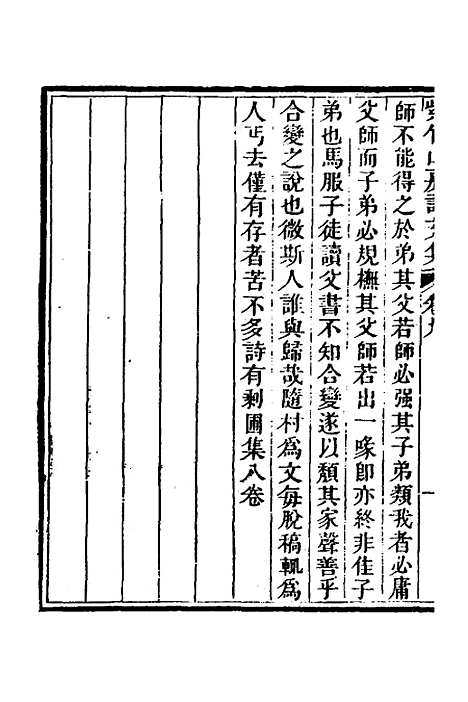 紫竹山房詩文集 卷九
師不能得之於弟其父若師必强其子弟類我者必庸
父師而子弟必規橅其父師若出一喙卽亦終非佳子
弟也馬服子徒讀父書不知合變遂以頹其家聲善乎
合變之說也微斯人誰與歸哉隨村爲文每脫稿輒爲
人丐去僅有存者苦不多詩有剩圃集八卷